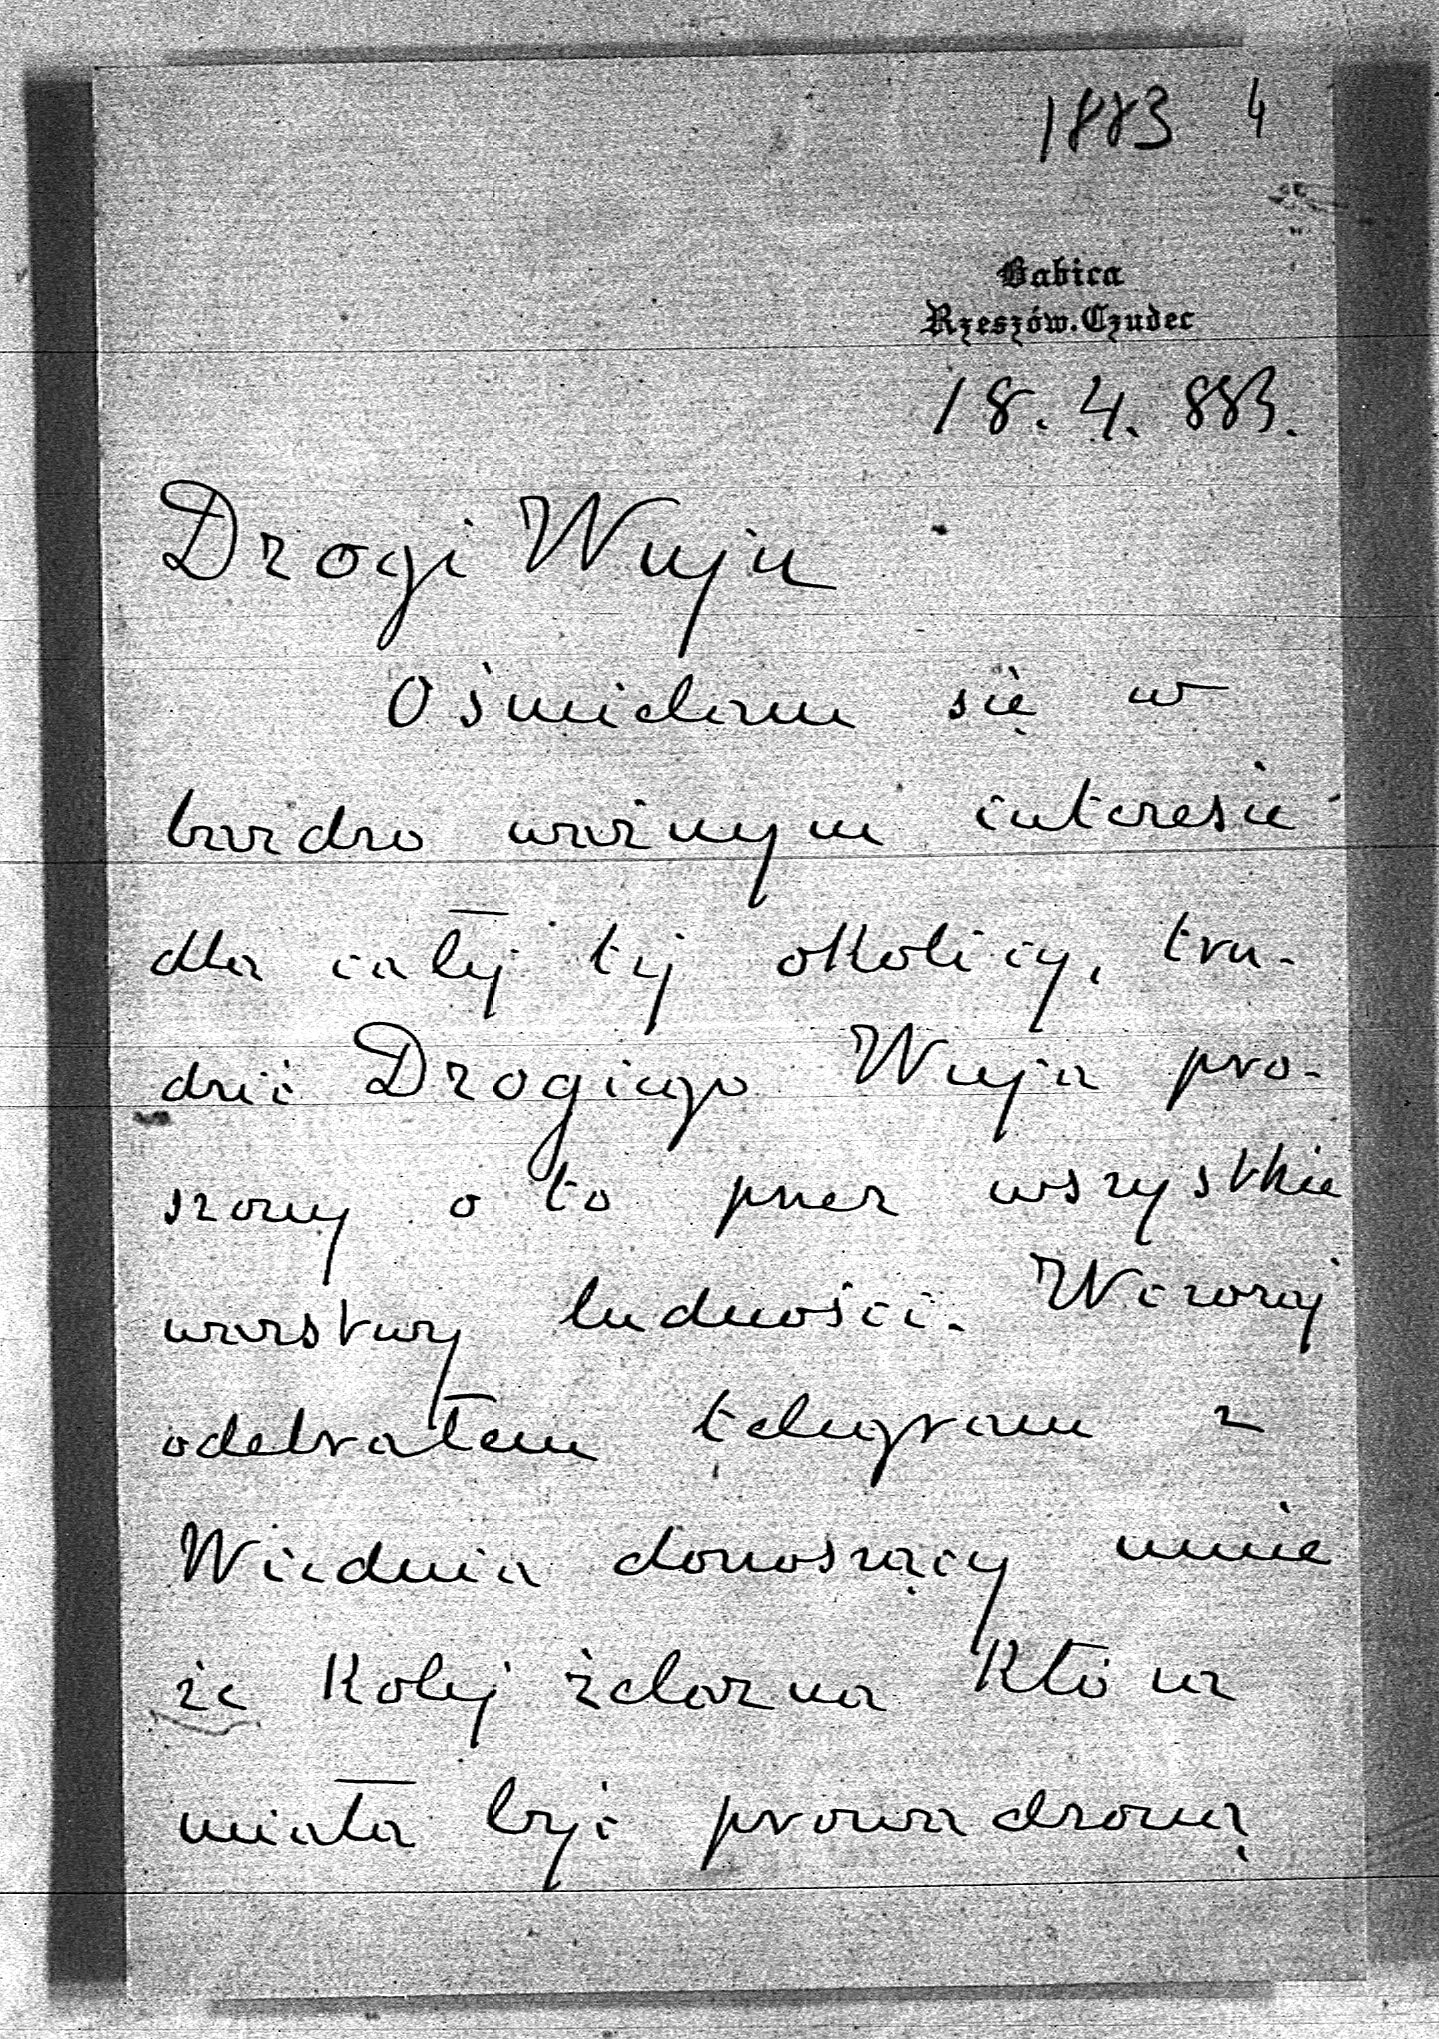 1883 4
Babica
Rzeszów. Czudec
18. 4. 883.
Drogi Wuju
Ośmielam się w
bardzo ważnym interesie
dla całej tej okolicy, tru-
dzić Drogiego Wuja pro-
szony o to przez wszystkie
warstwy ludności. Wczoraj
odebrałem telegram z
Wiednia donoszący mnie
że Kolej żelazna Która
miała być prowadzoną